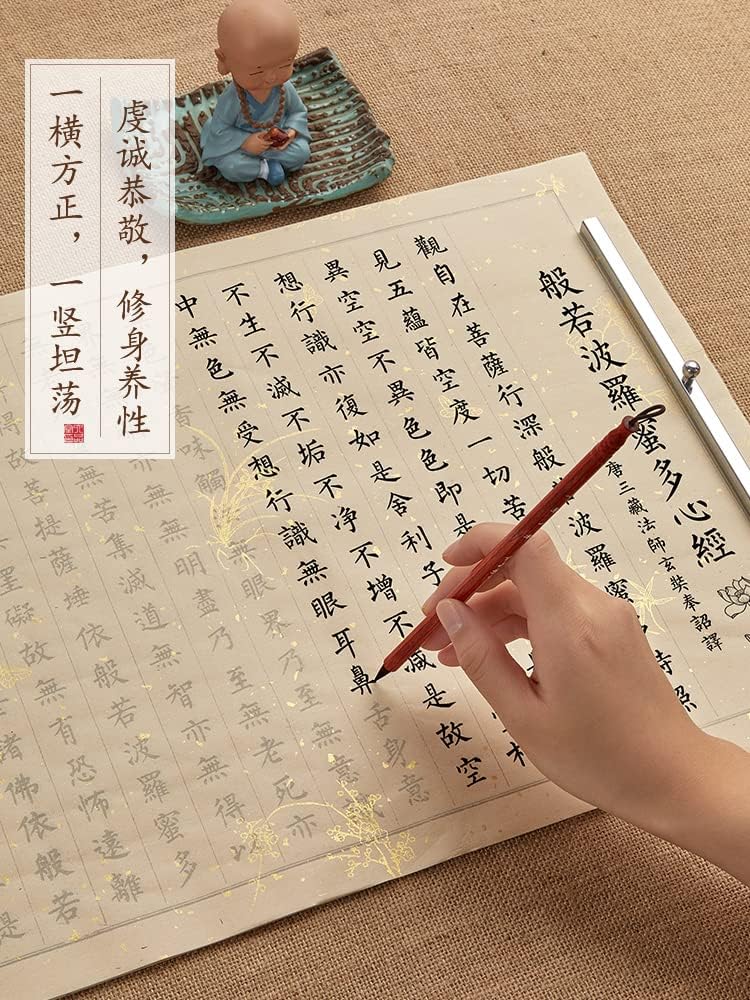 虔诚恭敬，修身养性
一横方正，一竖坦荡
般若波羅蜜多心經
唐三藏法師玄奘奉詔譯
觀自在菩薩行深般若波羅蜜時照
見五蘊皆空度一切苦
異空空不異色色即是
想行識亦復如是舍利子相
不生不滅不垢不净不增不減是故空
中無色無受想行識無眼耳鼻舌身意
香味觸無眼界乃至無意識
無無明盡乃至無老死亦
無苦集滅道無智亦無得以
故菩提薩埵依般若波羅蜜多
罣礙故無有恐怖遠離
諸佛依般若
是